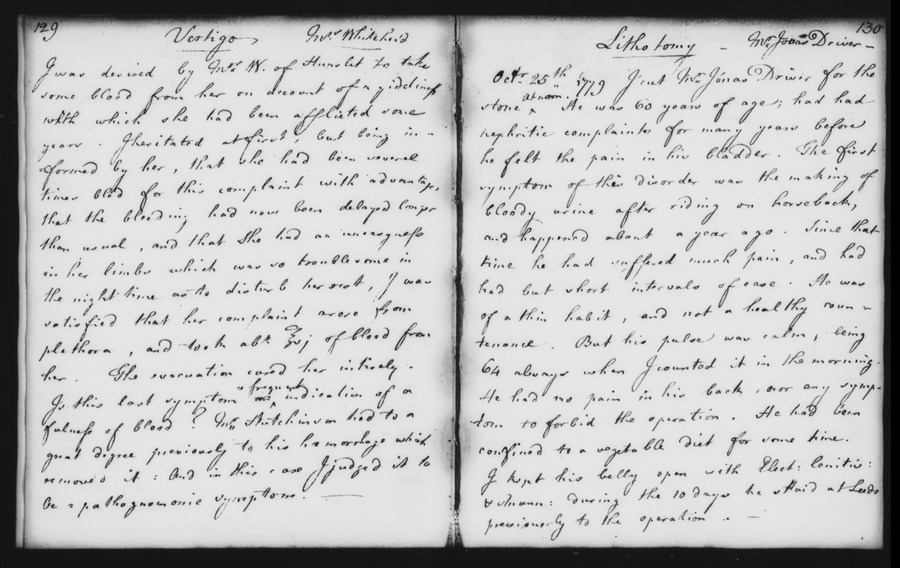 129
Vertigo, Mrs Whitehead
I was desired by Mrs W. of Hunslet to take
some blood from her on account of a giddiness
with which she had been afflicted some
years. I hesitated at first, but being in=
formed by her, that she had been several
times bled for this complaint with advantage,
that the bleeding had now been delayed longer
than usual, and that She had an uneasyness
in her limbs which was so troublesome in
the night time as to disturb her rest, I was
satisfied that her complaint arose from
plethora, and took abt ℥vj of blood from
her. The evacuation cured her intirely.
Is this last symptom a frequent indication of a
fulness of blood? Mr Hutchinson had to a
great degree previously to his hæmorrhage which
removed it: And in this case I judged it to
be a pathognomonic symptom. —
130
Lithotomy — Mr Jonas Driver —
Octr 25th 1779 I cut Mr Jonas Driver for the
stone at noon. He was 60 years of age; had had
nephritic complaints for many years before
he felt the pain in his bladder. The first
symptom of this disorder was the making of
bloody urine after riding on horseback,
and happened about a year ago. Since that
time he had suffered much pain, and had
had but short intervals of ease. He was
of a thin habit, and not a healthy coun=
tenance. But his pulse was calm, being
64 always when I counted it in the morning.
He had no pain in his back, nor any symp-
tom to forbid the operation. He had been
confined to a vegetable diet for some time.
I kept his belly open with Elect: lenitiv:
& Mann: during the 10 days he staid at Leeds
previously to the operation. —